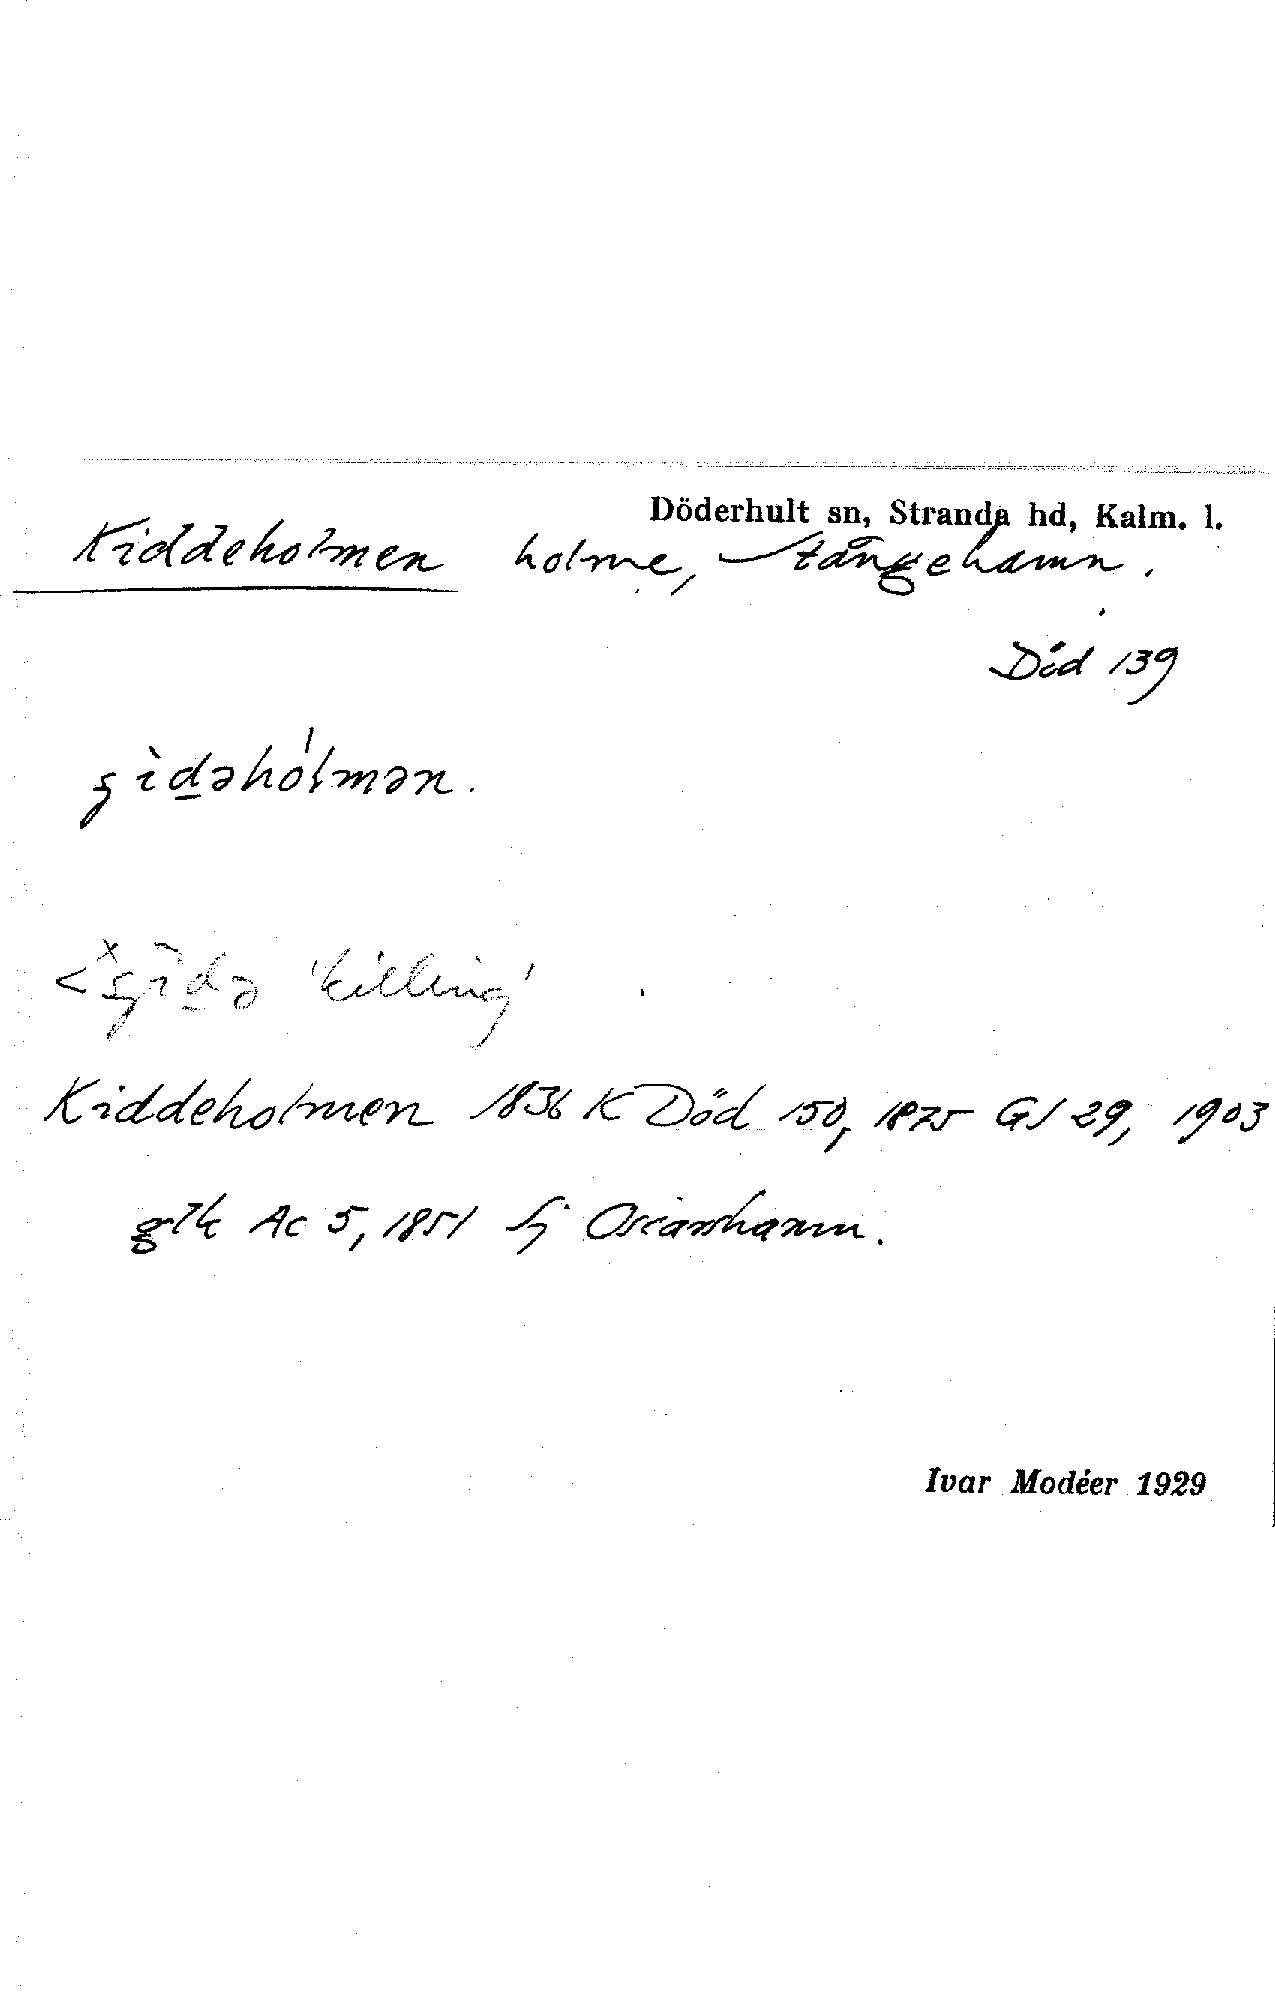 Döderhult sn, Stranda hd, Kalm. l.
Kiddeholmen holme, Stångehamn.
Död 139
ʂìdəhólmən.
'killing'
Kiddeholmen 1836 K Död 150, 1875 GS 29, 1903
glk Ac 5, 1851 Sj Oscarshamn.
Ivar Modéer 1929